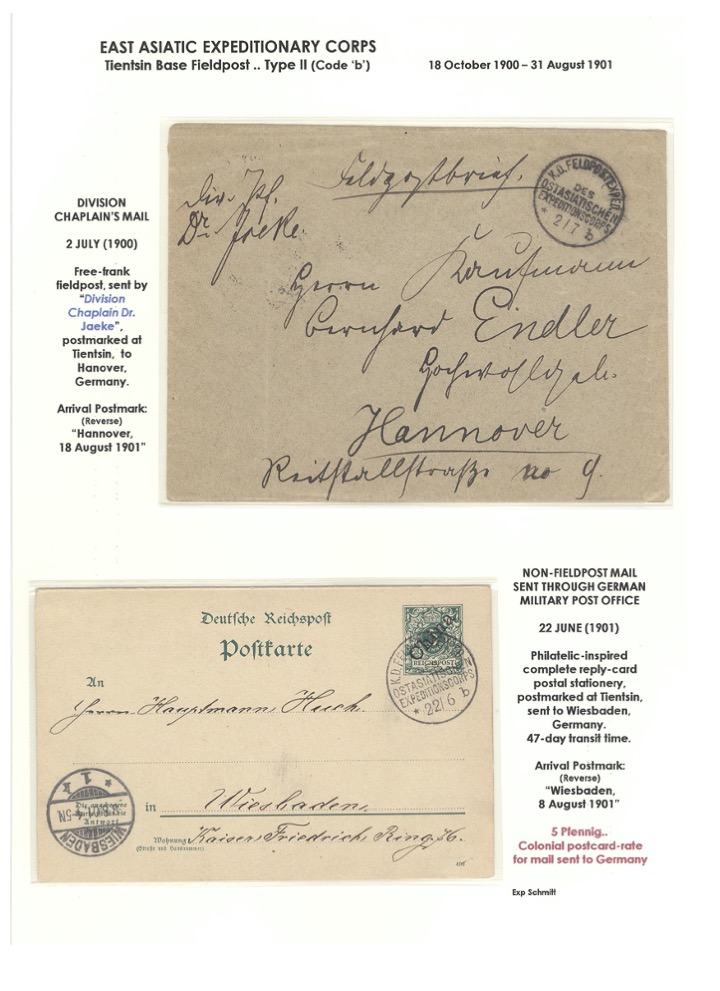 EAST ASIATIC EXPEDITIONARY CORPS
Tientsin Base Fieldpost .. Type II (Code ‘b’)
18 October 1900 – 31 August 1901
DIVISION
CHAPLAIN'S MAIL
2 JULY (1900)
Free-frank
fieldpost, sent by
“Division
Chaplain Dr.
Jaeke”,
postmarked at
Tientsin, to
Hanover,
Germany.
Arrival Postmark:
(Reverse)
“Hannover,
18 August 1901”
Feldpostbrief.
Div. Pf.
Dr. Jaeke.
K.D. FELDPOSTEXPED.
DES
OSTASIATISCHEN
EXPEDITIONSCORPS
* 2/7 b
Herrn Kaufmann
Bernhard Eindler
Hochwohlgeb.
Hannover
Reitstallstraße no 9.
NON-FIELDPOST MAIL
SENT THROUGH GERMAN
MILITARY POST OFFICE
22 JUNE (1901)
Philatelic-inspired
complete reply-card
postal stationery,
postmarked at Tientsin,
sent to Wiesbaden,
Germany.
47-day transit time.
Arrival Postmark:
(Reverse)
“Wiesbaden,
8 August 1901”
5 Pfennig..
Colonial postcard-rate
for mail sent to Germany
Exp Schmitt
Deutsche Reichspost
Postkarte
China
REICHSPOST
OSTASIATISCHEN
EXPEDITIONSCORPS
* 22/6 b
An
Herrn Hauptmann Huch.
in Wiesbaden,
Wohnung Kaiser Friedrich Ring
(Straße und Hausnummer)
Die angebogene
Antwort
WIESBADEN
* 1 *